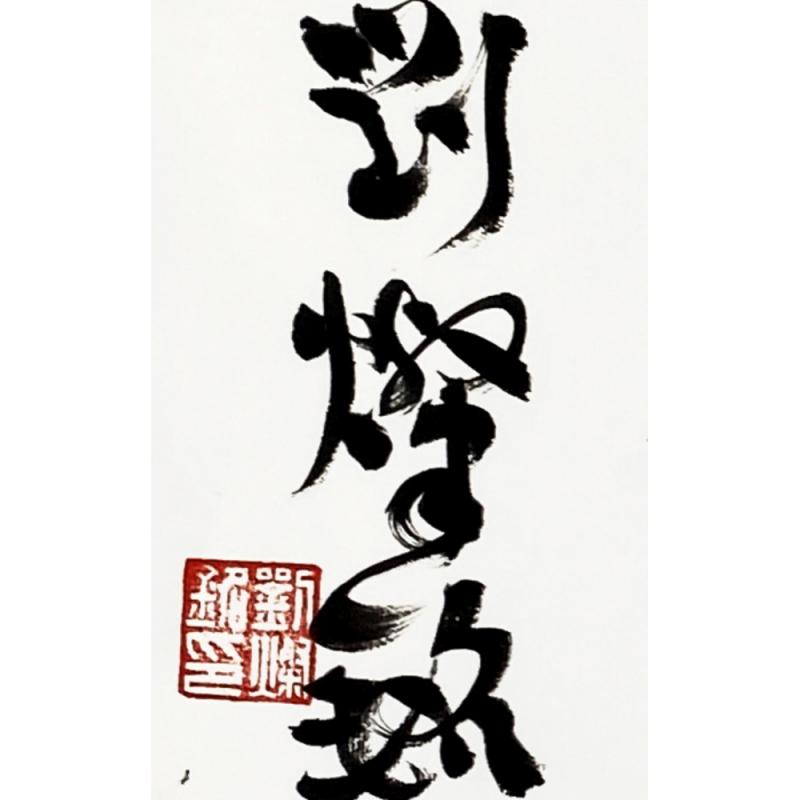 劉燦銘
劉燦
銘印